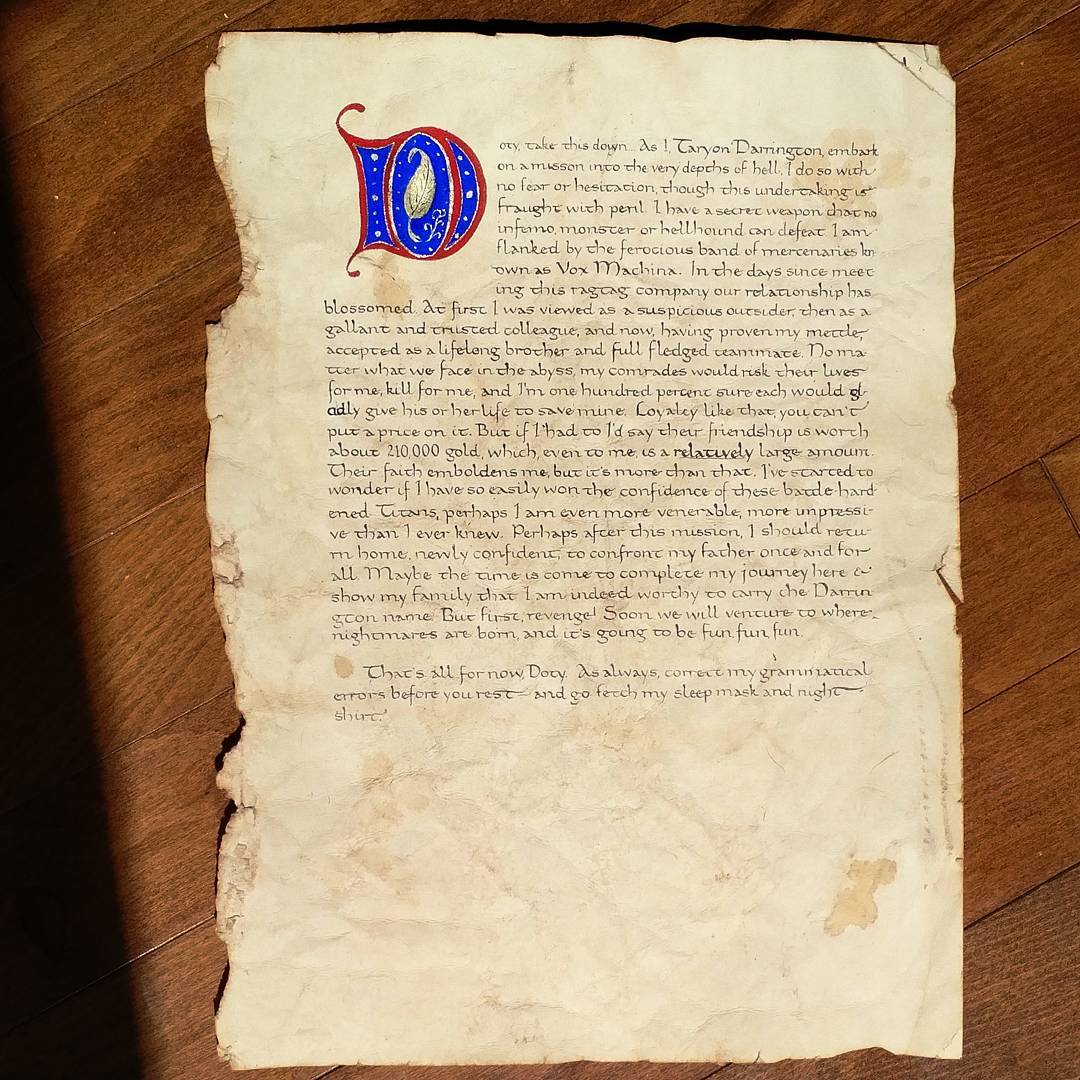 Doty, take this down... As I, Taryon Darrington, embark
on a misson into the very depths of hell, I do so with
no fear or hesitation, though this undertaking is
fraught with peril. I have a secret weapon that no
inferno, monster or hellhound can defeat. I am
flanked by the ferocious band of mercenaries kn
own as Vox Machina. In the days since meet
ing this ragtag company our relationship has
blossomed. At first I was viewed as a suspicious outsider, then as a
gallant and trusted colleague, and now, having proven my mettle,
accepted as a lifelong brother and full fledged teammate. No ma-
tter what we face in the abyss, my comrades would risk their lives
for me, kill for me, and I'm one hundred percent sure each would gl-
adly give his or her life to save mine. Loyalty like that, you can't
put a price on it. But if I had to I'd say their friendship is worth
about 210,000 gold, which, even to me, is a relatively large amount.
Their faith emboldens me, but it's more than that. I've started to
wonder if I have so easily won the confidence of these battle-hard
ened Titans, perhaps I am even more venerable, more impressi-
ve than I ever knew. Perhaps after this mission, I should retu-
rn home, newly confident, to confront my father once and for
all. Maybe the time is come to complete my journey here &
show my family that I am indeed worthy to carry the Darrin
gton name. But first, revenge! Soon we will venture to where
nightmares are born, and it's going to be fun fun fun.
That's all for now, Doty. As always, correct my grammatical
errors before you rest – and go fetch my sleep mask and night
shirt.